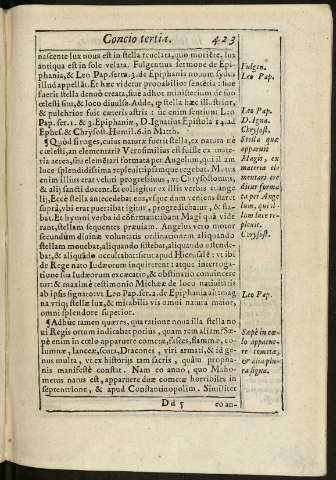 Concio tertia. 423
nascente lux nous est in stella reuelata, quo moriéte, lux
antiqua est in sole velata. Fulgentius sermone de Epi-
phania, & Leo Pap. serm. 3. de Epiphania nouum sydus
illud appellāt. Et hæc videtur probabilior sentētia: siue
fuerit stella denuò creata, siue adhoc ministerium de suo
cœlesti situ, & loco diuulsa. Adde, ꝙ stella hæc illustrior,
& pulchrior fuit cæteris astris: sic enim sentiunt Leo
Pap. ser. 1. & 3. Epiphaniæ, D. Ignatius Epistola 14. ad
Ephes. & Chrysost. Homil. 6. in Matth.
¶ Quòd si roges, cuius naturæ fuerit stella, ex natura nè
cœlesti, an elementari? Verosimilius est fuisse ex mate-
ria aerea, seu elemētari formata per Angelum, qui il am
luce splendidissima repleuit, ipsamque regebat. Motus
enim illius erat veluti progressiuus, vt Chrysostomus,
& alij sancti docent. Et colligitur ex illis verbis Euange
lij, Ecce stella antecedebat eos, vsque dum veniens staret
suprà, vbi erat puer: ibat igitur, progrediebatur, & sta-
bat. Et hymni verba id cōfirmant: ibant Magi quà vide
rant, stellam sequentes præuiam. Angelus verò motor
secundum diuinæ voluntatis ordinationem aliquando
stellam mouebat, aliquando sistebat, aliquando ostende-
bat, & aliquādo occultabat: sicut apud Hierusalē: vt ibi
de Rege nato Iudæorum inquirerent: atque interroga-
tione sua Iudæorum excæcatio, & obstinatio conuincere
tur: & maximè testimonio Micheæ de loco natiuitatis
ab ipsis signato: vt Leo Pap. ser. 2. de Epiphania ait: mag
na vtiq; stella lux, & mirabilis vis omni natura maior,
omni splendore superior.
¶ Adhuc tamen quæres, qua ratione noua illa stella no
ui Regis ortum indicabat potius, quam rem aliam? Sæ-
pè enim in cœlo apparuere cometæ, fasces, flammæ, co-
lumnæ, lanceæ, scuta, Dracones, viri armati, & id ge-
nus multa, vt ex historijs tam sacris, quàm propha-
nis manifestè constat. Nam eo anno, quo Maho-
metus natus est, apparuere duæ cometæ horribiles in
septentrione, & apud Constantinopolim. Similiter
Dd 5 eo an-
Fulgen.
Leo Pap.
Leo Pap.
D. Igna.
Chrysost.
Stella quæ
apparuit
Magis, ex
materia ele
mentari cre
ditur forma
ta per Ange
lum, qui il-
lam luce re-
pleuit.
Corysost.
Leo Pap.
Sæpè in cœ-
lo apparue-
re cometæ,
& alia plu-
ra signa.